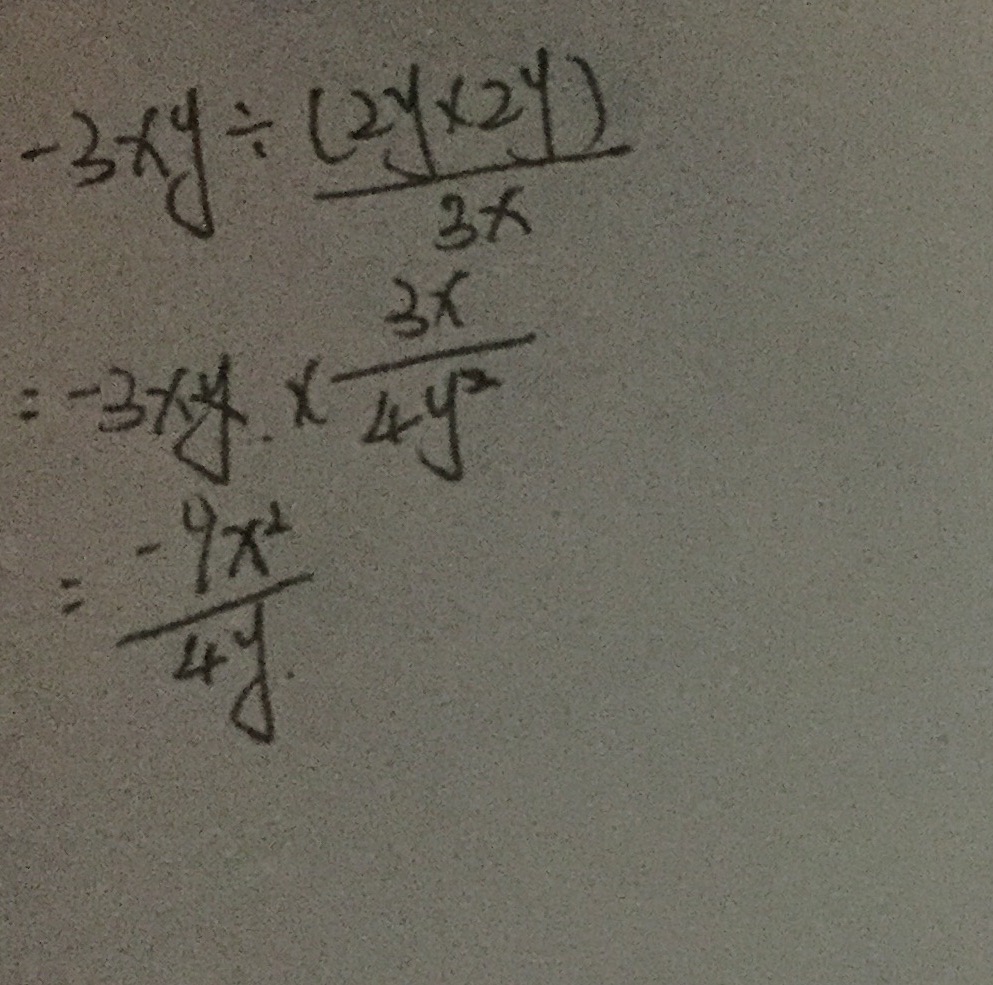 -3xy ÷ (2y×2y)/3x
= -3xy × 3x/4y²
= -9x²/4y.